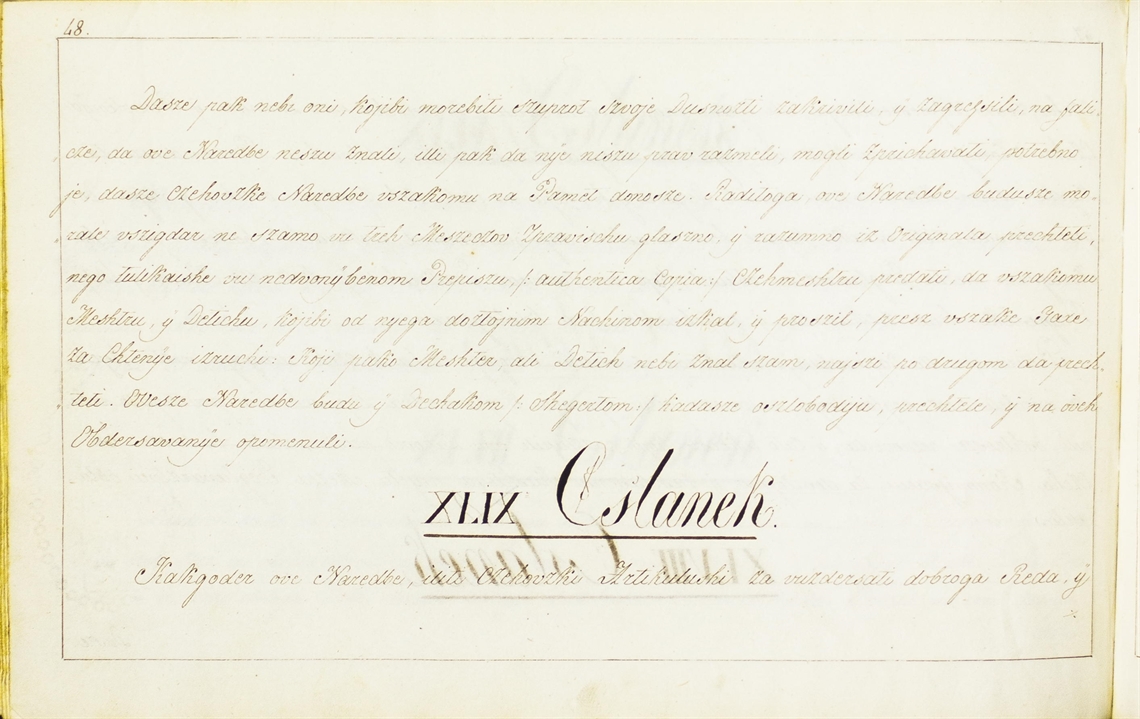 48.
Dasze pak nebi oni, kojibi morebiti szuprot szvoje Dusnozti zakriviti, ÿ zagressili, na fali-
cze, da ove Naredbe neszu znali, illi pak da nye niszu prav razmeli, mogli zprichavati, potrebno
je, dasze Czehovzke Naredbe vszakomu na Pamet donosze. Raditoga ove Naredbe budusze mo-
rale vszigdar ne szamo vu treh Meszeczov Zpravischu glaszno, ÿ razumno iz Originala prechteti,
nego tulikaishe vu nedvoÿbenom Prepiszu, /: authentica Copia :/ Czehmeshtru predati, da vszakomu
Meshtru, ÿ Detichu, kojibi od njega doztojnim Nachinom izkal, ÿ proszil, prez vszake Taxe
za Chtenÿe izruchi: Koji pako Meshter, ali Detich nebi znal szam, najsze po drugom da prech-
teti. Ovesze Naredbe budu ÿ Dechakom /: Shegertom :/ kadasze oszlobodiju, prechtele, ÿ na ovih
Obdersavanÿe opomenuli.
XLIX Cslanek.
Kakgoder ove Naredbe, iliti Czehovzki Artikulushi za vuzdersati dobroga Reda, ÿ
·/·